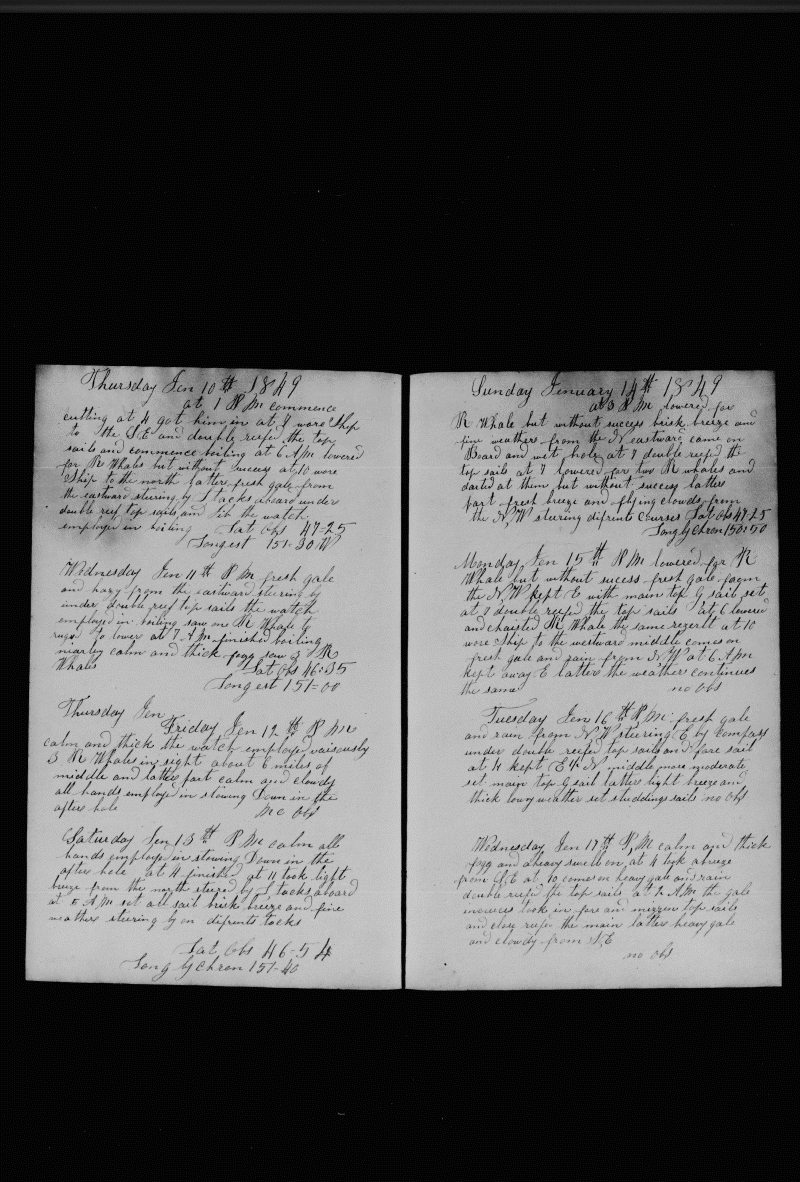 Thursday Jen 10th 1849
at 1 P M commence
cutting at 4 got him in at 8 wore Ship
to the S.E and double reefed the top
sails and commence boiling at 6 A M lowered
for R Whales but without success at 10 wore
Ship to the north latter fresh gale from
the eastward stering by S tacks aboard under
double reef top sails and jib the watch
employe in boiling Lat Obs 47-25
Long est 151-30 W
Wednesday Jen 11th P M fresh gale
and hazy from the eastward steering by
under double reef top sails the watch
employe in boiling saw one R Whale to
ruged to lower at 7 A m finished boiling
niarley calm and thick fogg saw 3 R
Whales Lat Obs 46:35
Long est 151=00
Thursday Jen
Friday Jen 12th P M
calm and thick the watch employe vairously
3 R Whales in sight about 6 miles of
middle and latter part calm and clowdy
all hands employe in stowing Down in the
after hole no Obs
Saturday Jen 13th P M calm all
hands employe in stowing Down in the
after hole at 4 finish at 11 took light
breze from the north stered by S tacks aboard
at 5 A M set all sail brisk breeze and fine
weather steering by on difrents tacks
Lat Obs 46-54
Long by Chron 151-40
Sunday Jenuary 14th 1849
at 3 P M lowered for
R Whale but without success brisk breeze and
fine weathers from the N eastward came on
Board and wet hole at 7 double reefed the
top sails at 7 lowered for two R whales and
darted at them but without success latter
part fresh breeze and flying clowds from
the N,W steering difrents courses Lat Obs 47-25
Long by Chron 150:50
Monday Jen 15th P M lowered for R
Whale but without sucess fresh gale from
the N.W kept E with main top G sail set
at 7 double reefed the top sails at 6 lowered
and chaisted R Whale the same reserlt at 10
wore Ship to the westward middle comes on
fresh gale and rain from N.W at 6 A m
kept away E latter the weather continues
the same no Obs
Tuesday Jen 16th P,M fresh gale
and rain from N.W steering E by compass
under double reefed top sails and fore sail
at 4 kept E th N middle more moderate
set main top G sail latter light breeze and
thick lowy weather set studdingsails no Obs
Wednesday Jen 17th P,M calm and thick
fogg and a heavy swell on, at 4 took a breeze
from S,E at 10 comes on heavy gale and rain
double reefed the top sails at 2 A,M the gale
increces took in fore and mizzen top sails
and close reefed the main latter heavy gale
and clowdy from S.E
no obs